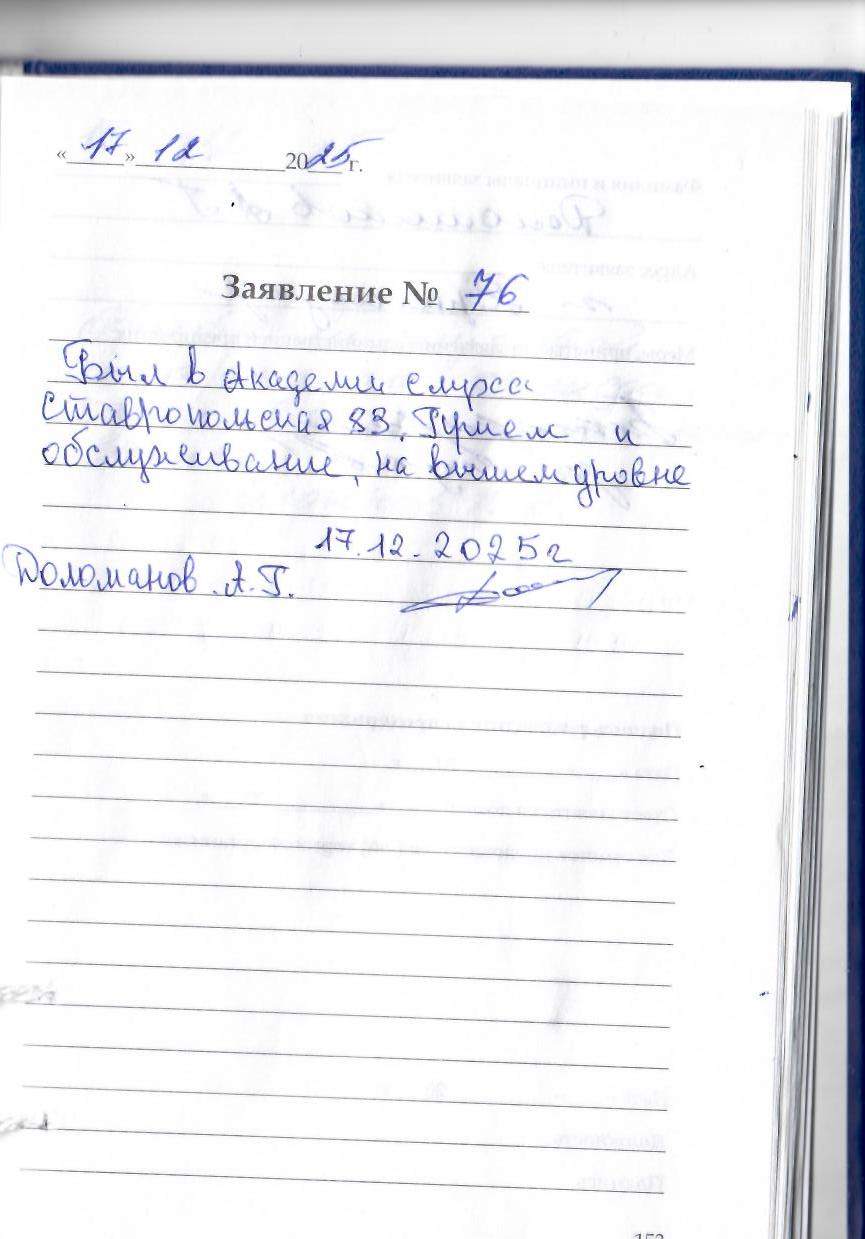 «17» 12 2025 г.
Заявление № 76
Был в Академии слуха
Ставропольская 83. Приём и
обслуживание, на вышем уровне
17.12.2025г
Доломанов А.Г.